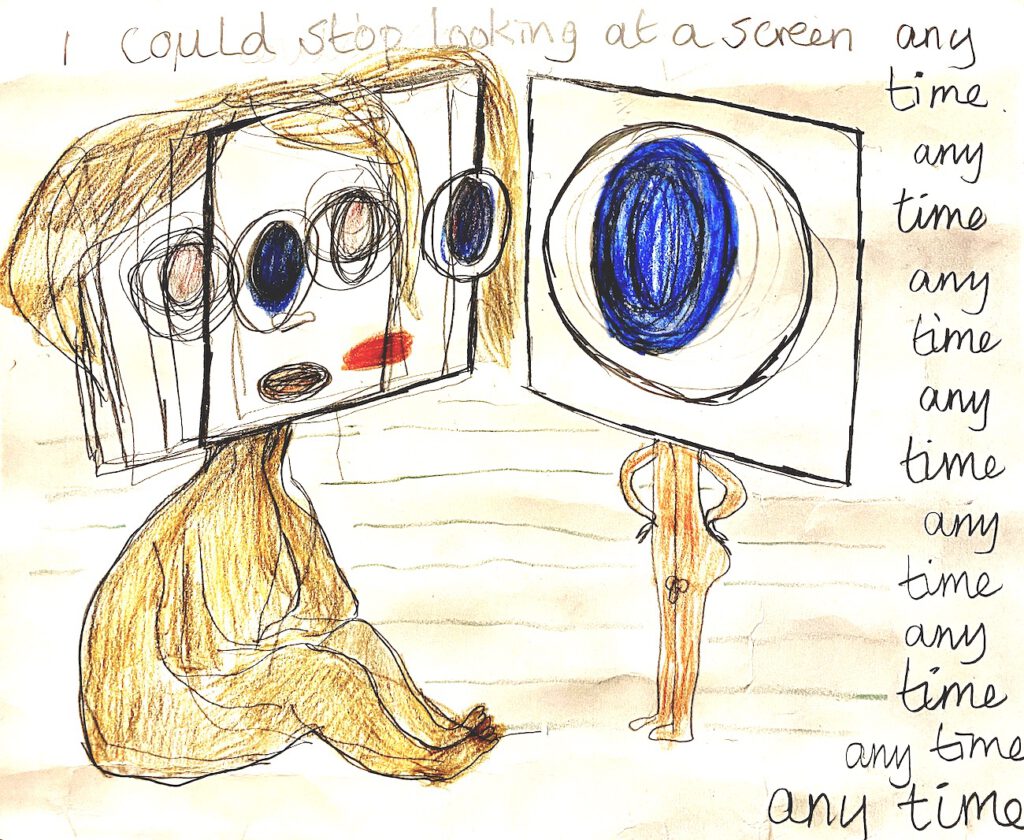 I could stop looking at a screen any
time.
any
time
any
time
any
time
any
time
any
time
any time
any time